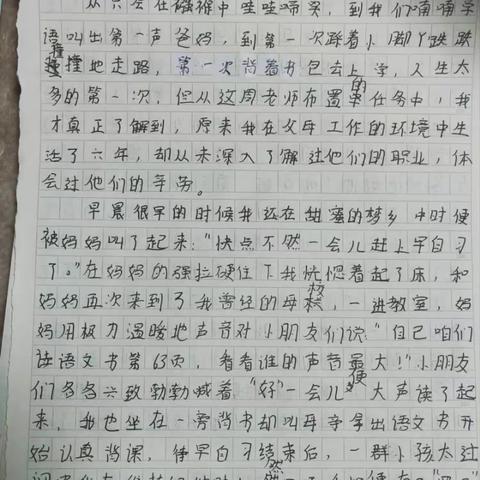 从只会在襁褓中哇哇啼哭,到我们喃喃学
语叫出第一声爸妈,到第一次踩着小脚丫跌跌
撞撞地走路,第一次背着书包去上学,人生太
多的第一次,但从这周老师布置的任务中,我
才真正了解到,原来我在父母工作的环境中生
活了六年,却从未深入了解过他们的职业,体
会过他们的辛劳。
早晨很早的时候我还在甜蜜的梦乡中时便
被妈妈叫了起来:“快点不然一会儿赶上早自习
了。”在妈妈的强拉硬住下我恍惚着起了床,和
妈妈再次来到了我曾经的母校,一进教室,妈
妈用极力温暖地声音对小朋友们说:“自己咱们
读语文书第63页,看看谁的声音最大!”小朋友
们各各兴致勃勃喊着“好”一会儿便大声读了起
来,我也坐在一旁背书却叫母亲拿出语文书开
始认真背课,待早自习结束后,一群小孩太过